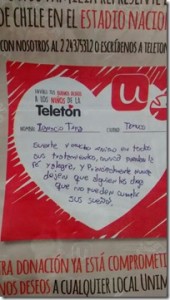 DE CHILE EN EL ESTADIO NACIO
CON NOSOTROS AL 2 24375312 O ESCRÍBENOS A TELETON
ENVÍALES TUS BUENOS DESEOS
A LOS NIÑOS DE LA
Teletón
NOMBRE
CIUDAD Temuco
Suerte y mucho ánimo en todos
sus tratamientos, nunca pierdan la
fé y alegre, y Principalmente nunca
dejen que alguien les diga
que no pueden cumplir
sus sueños.
TRA DONACIÓN YA ESTÁ COMPROMETI
NOS DESEOS A CUALQUIER LOCAL UNIM